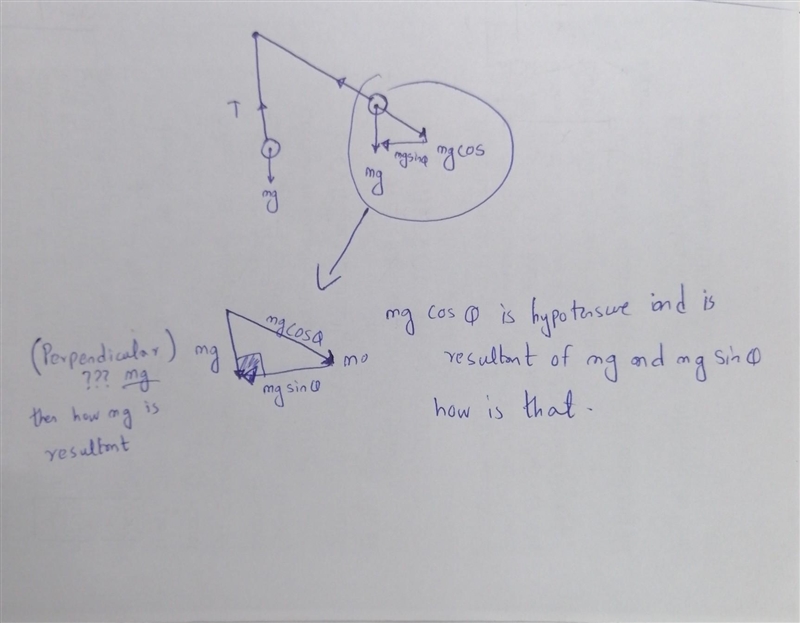 T
mg
mg
mg sinφ
mg cos
mg cosφ
(Perpendicular) mg
??? mg
then how mg is
resultant
mg sinφ
mo
mg cos φ is hypotensure and is
resultant of mg and mg sin φ
how is that.